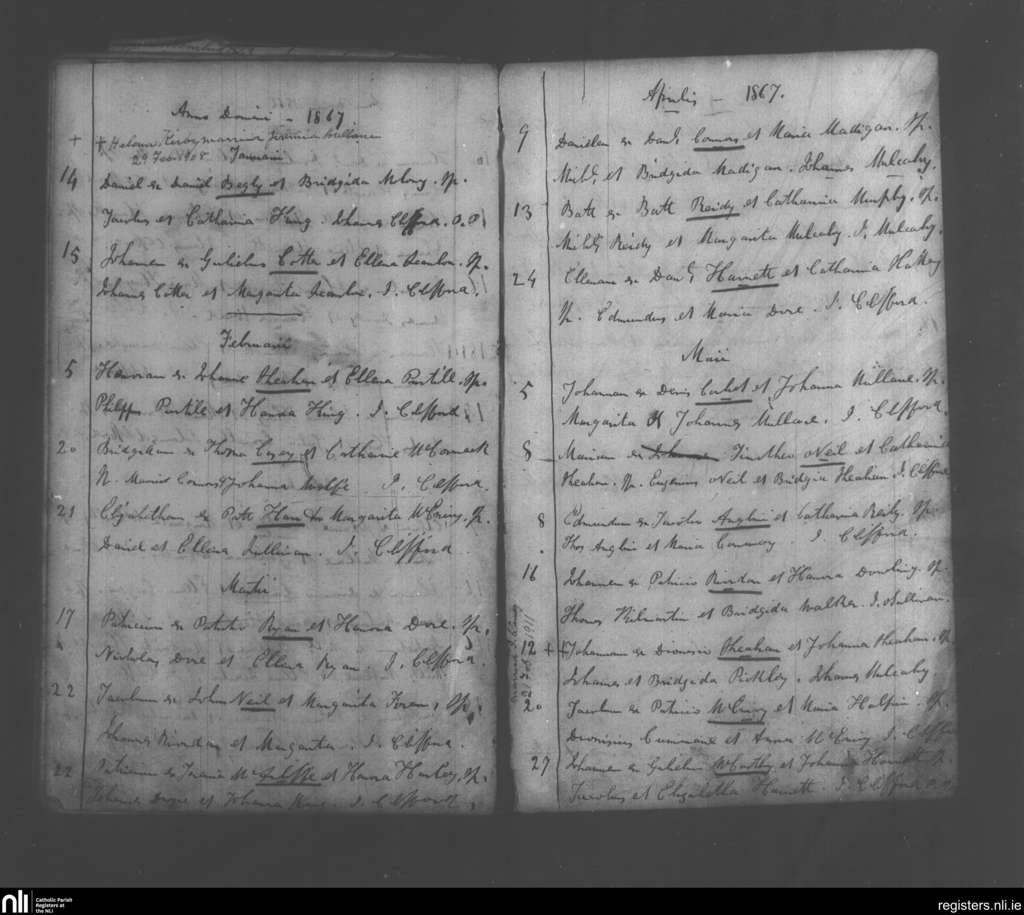 Anno Domini - 1867
+ + Helena married Jeremia
29 Feb 1908 Januarii
14 Daniel ex Daniel Begly et Bridgida Molony. Sp.
Jacobus et Catharina King. Johannes Clifford. O.P.
15 Johannem ex Gulielmo Cotter et Ellena Scanlon. Sp.
Johannes Cotter et Margarita Scanlon. J. Clifford.
Februarii
5 ex Johanne Sheahan et Ellena Purtill. Sp.
Philippus Purtile et Honora King. J. Clifford
20 Bridgidam ex Thoma Casey et Catharine McCormack
Sp. Marius Connors & Johanna Wolfe J. Clifford.
21 Elizabetham ex Patt et Margarita McEniry. Sp.
David et Ellena Sullivan. J. Clifford
Martii
17 Patricium ex Patritio Ryan et Honora Dore. Sp.
Nicholas Dore et Ellena Ryan. J. Clifford.
22 Jacobum ex John Neil et Margarita Sp.
Johannes Riordan et Margarita. J. Clifford.
22 Patricium ex et Honora Hurley. Sp.
Johannes et Johanna King. J. Clifford
Aprilis - 1867.
9 Danielem ex Danl. Connors et Maria Madigan. Sp.
Michl. et Bridgida Madigan. Johannes Mulcahy.
13 Batt ex Batt Reidy et Catharina Murphy. Sp.
Michl. Reidy et Margarita Mulcahy. J. Mulcahy.
24 Ellenam ex Danl. Harnett et Catharina
Sp. Edmundus et Maria Dore. J. Clifford.
Maii
5 Johannam ex Denis et Johanna Mullane. Sp.
Margarita & Johannes Mullane. J. Clifford.
8 Mariam ex Timotheo oNeil et Catharina
Sheahan. Sp. Eugenius oNeil et Bridgida Sheahan. J. Clifford
8 Edmundum ex Jacobo Anglin et Catharina Reidy. Sp.
Thos Anglin et Maria J. Clifford.
16 Johannem ex Patricio Riordan et Honora Dowling. Sp.
Thomas Kilmartin et Bridgida Walker. J. Sullivan.
12 + + Johannam ex Dionisio Sheahan et Johanna Sheahan. Sp
Johannes et Bridgida. Johannes Mulcahy
married
21 Feb 1911
20 Jacobum ex Patricio McEniry et Maria Halpin. Sp.
Dionisius et Anna McEniry J. Clifford
27 Johannem ex Gulielmo McCarthy et Johanna Harnett Sp.
Jacobus et Elizabetha Harnett. J. Clifford
nli
Catholic Parish
Registers at
the NLI
registers.nli.ie